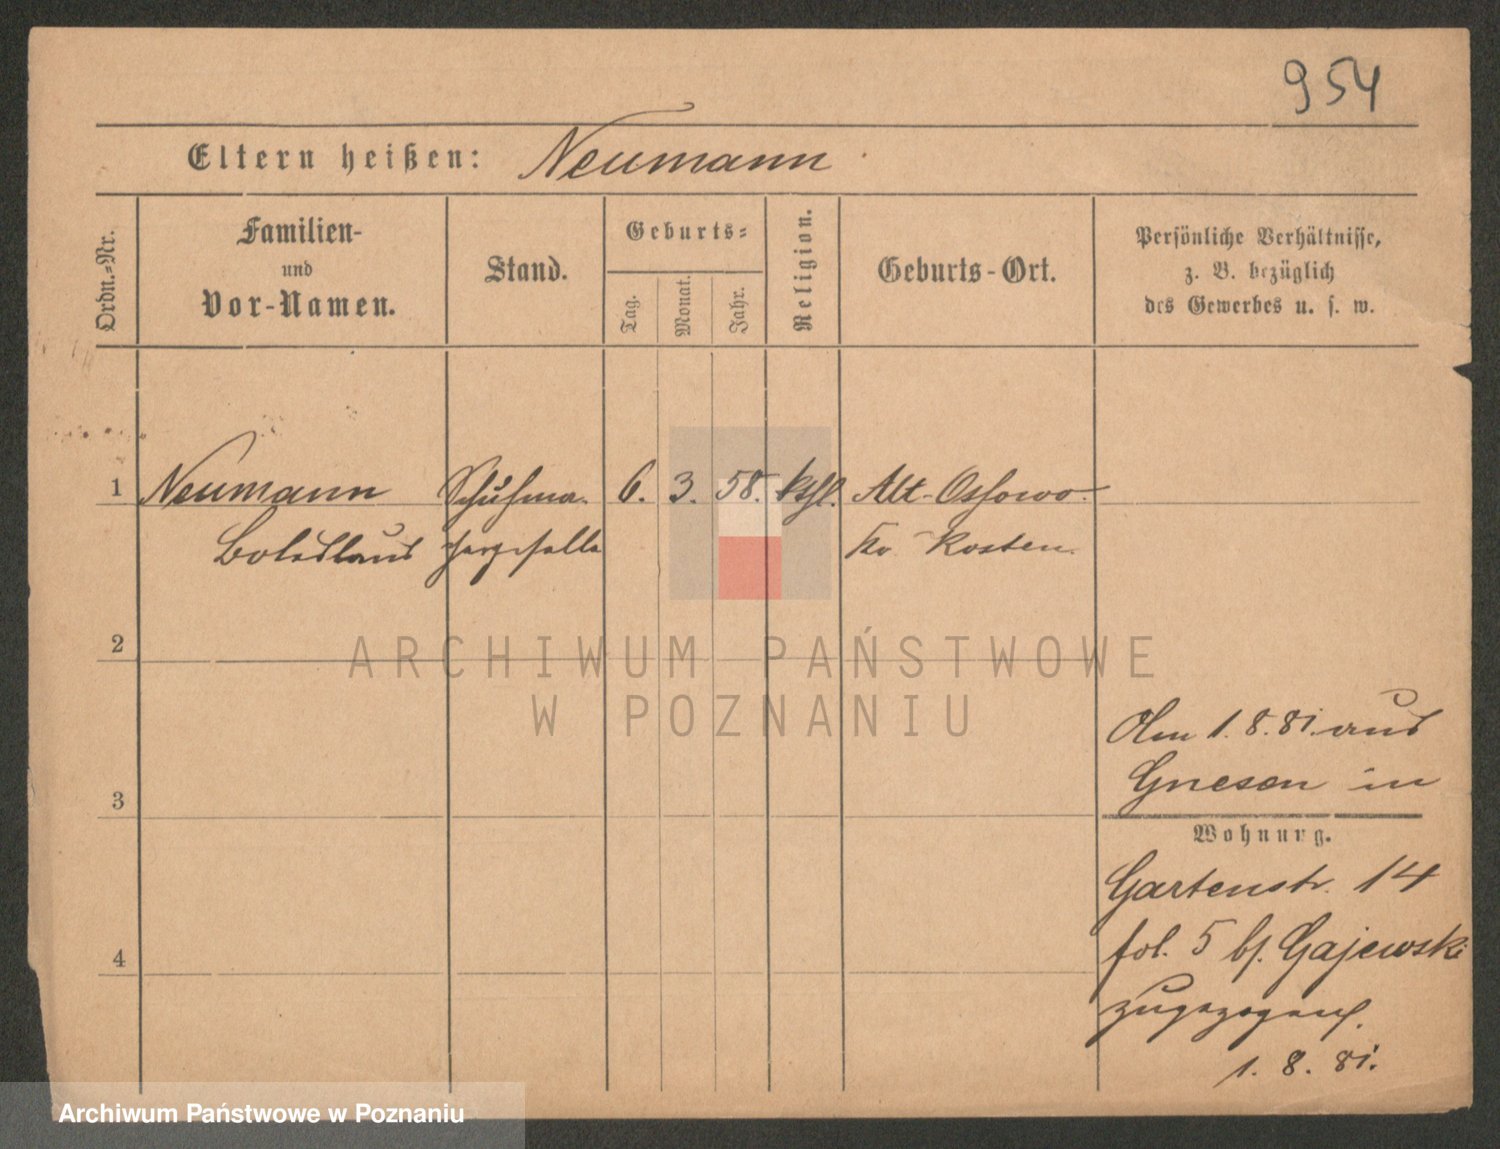 954
Eltern heißen: Neumann
Ordn.-Nr.
Familien-
und
Vor-Namen.
Stand.
Geburts-
Tag.
Monat.
Jahr.
Religion.
Geburts-Ort.
Persönliche Verhältnisse,
z. B. bezüglich
des Gewerbes u. s. w.
1 Neumann Schuhma- 6. 3. 58. kthl. Alt-Ossowo
Boleslaus chergeselle Kr Kosten.
2
ARCHIWUM PAŃSTWOWE
W POZNANIU
Am 1. 8. 81. aus
3 Gnesen in
Wohnung.
Gartenstr. 14
fol. 5 bj. Gajewski
4
zugezogen
1. 8. 81.
Archiwum Państwowe w Poznaniu